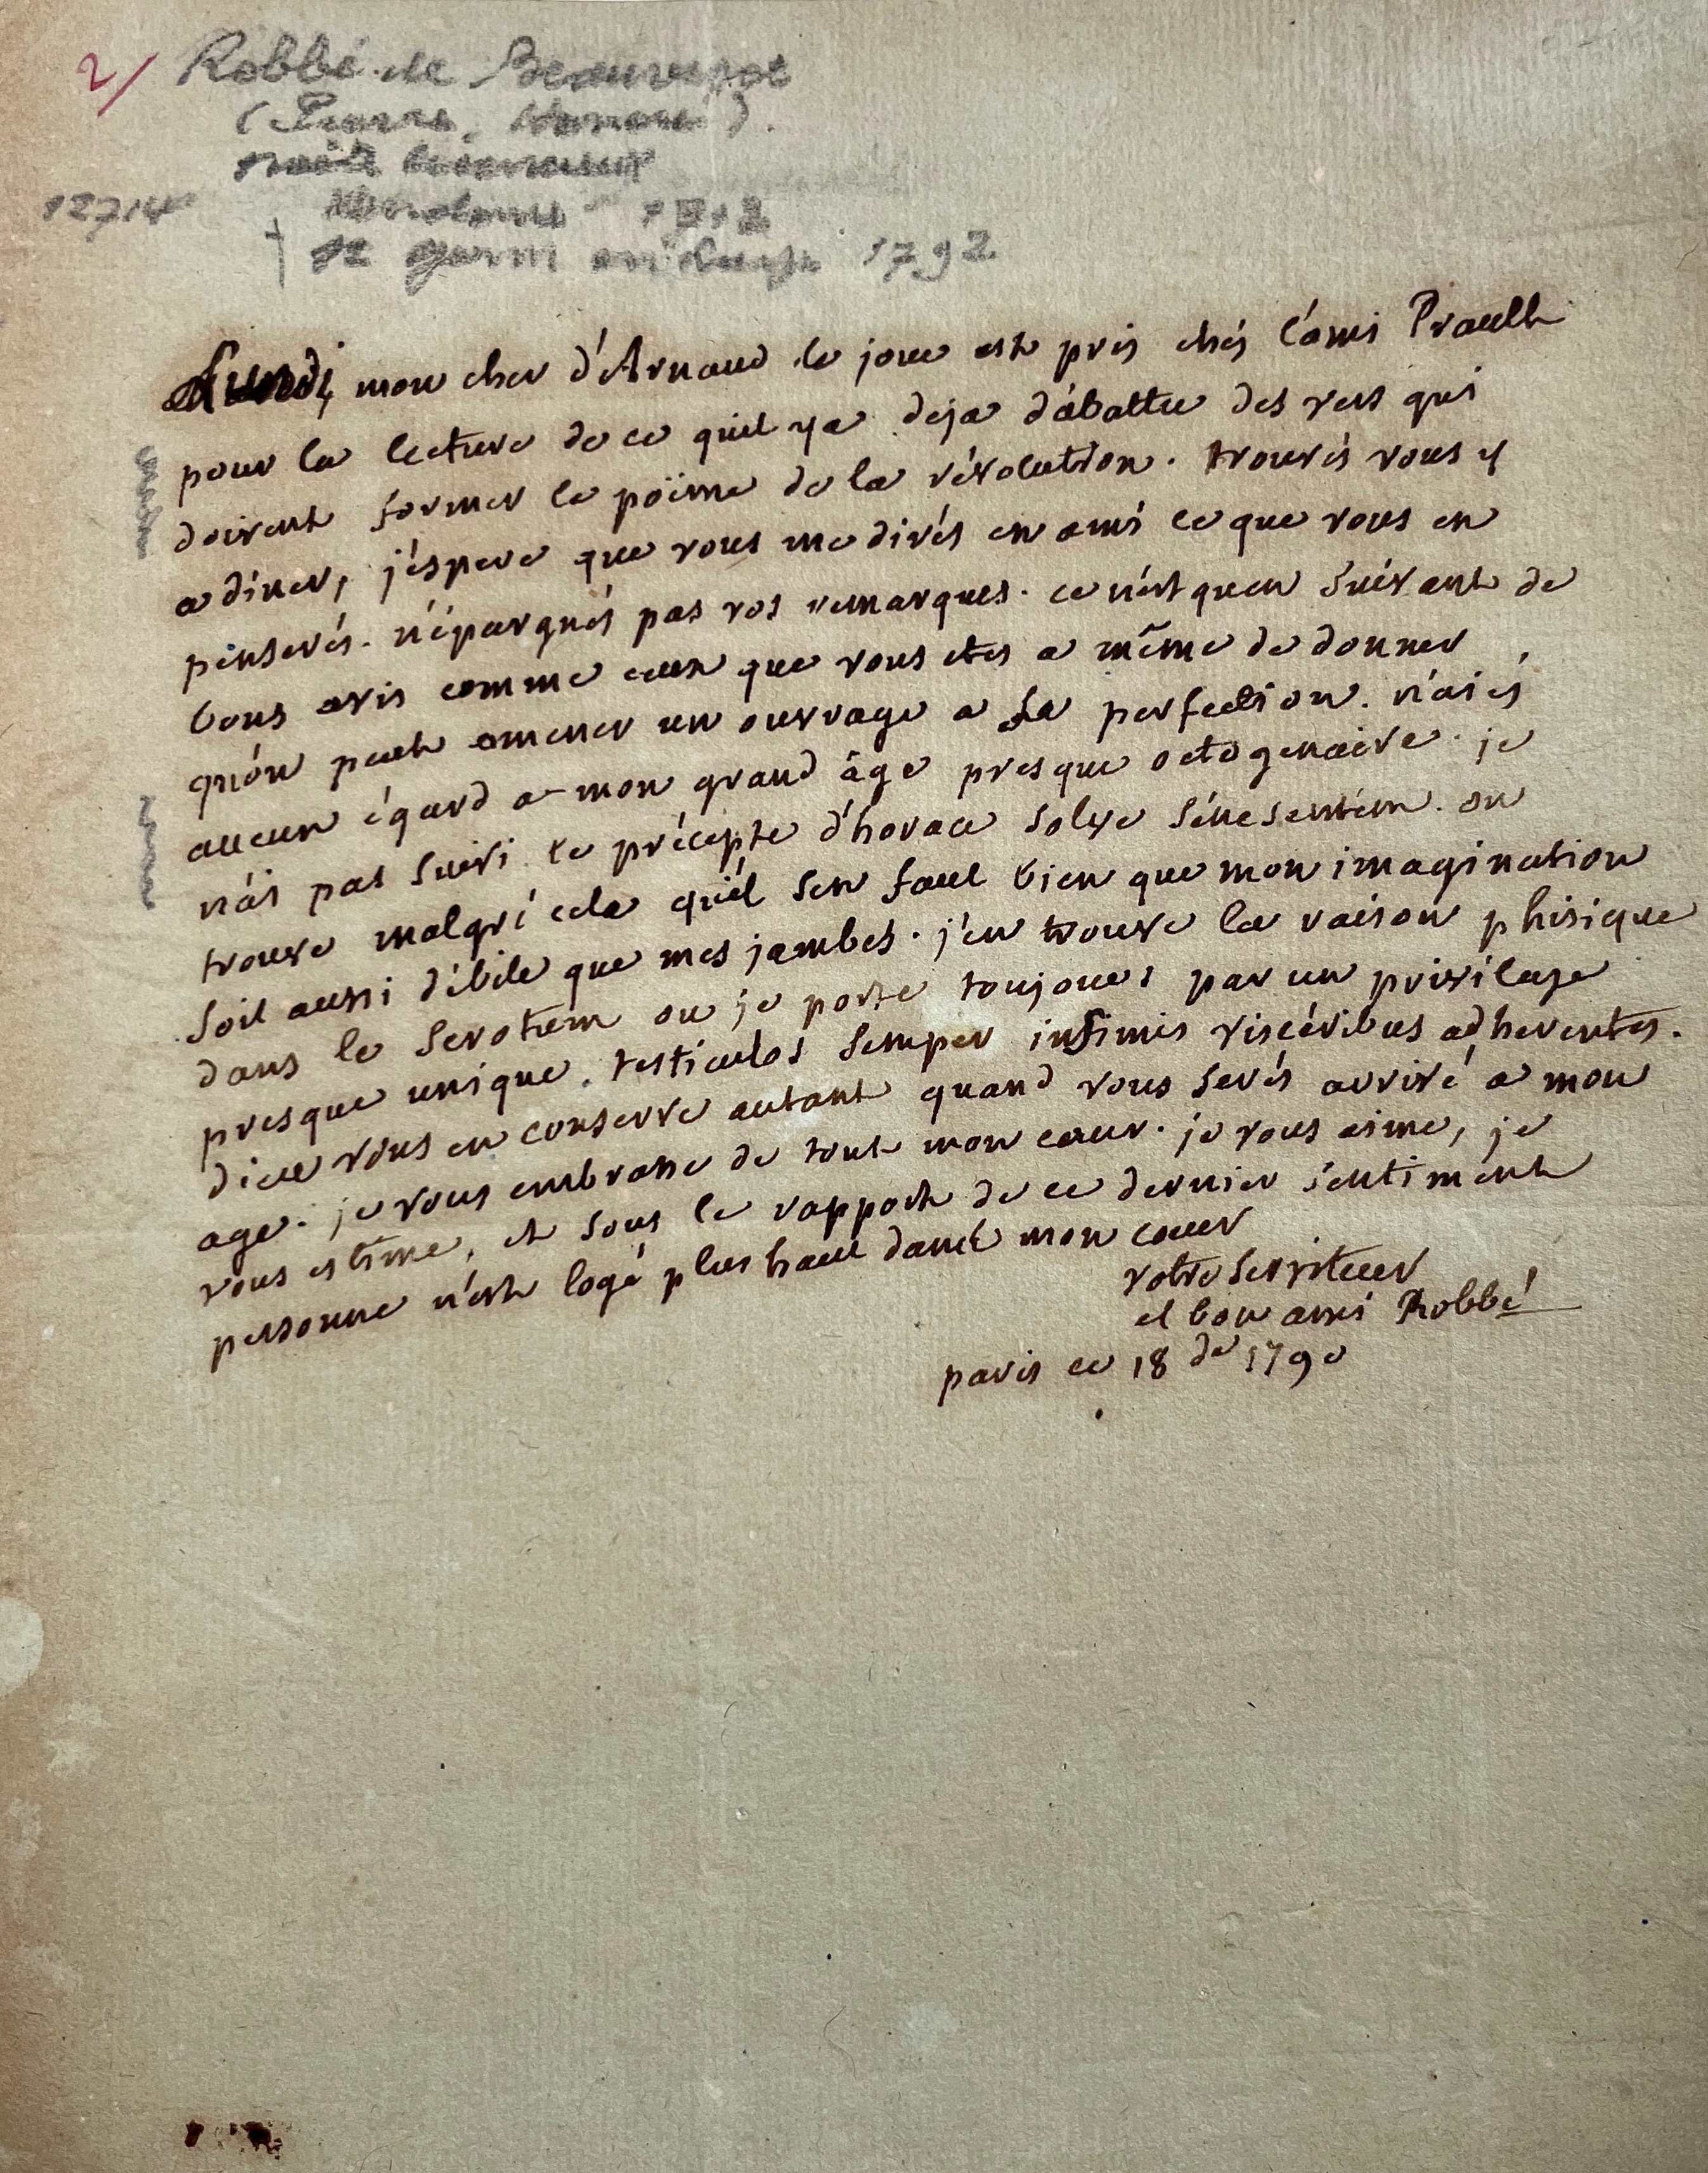 2/ Robbé de Beauveset
(Pierre, Honoré).
poète licencieux
12714 Vendôme 1712
† St Germ en Laye 1792
Lundi, mon cher d'Arnaud le jour est pris chés l'ami Prault
pour la lecture de ce quil ya deja d'abattu des vers qui
doivent former le poëme de la révolution. trouvés vous y
a diner, j'éspere que vous me dirés en ami ce que vous en
penserés. n'épargnés pas vos remarques. ce n'est quen suivant de
bons avis comme ceux que vous etes a même de donner
qu'on peut amener un ouvrage a sa perfection. n'aiés
aucun égard a mon grand âge presque octogenaire. je
n'ai pas suivi le précepte d'horace solve sénesentém. on
trouve malgré cela qu'il sen faut bien que mon imagination
soit aussi débile que mes jambes. j'en trouve la raison phisique
dans le scrotum ou je porte toujours par un privilege
presque unique. testiculos semper infimis viscéribus adherentes.
dieu vous en conserve autant quand vous serés arrivé a mon
age. je vous embrasse de tout mon cœur. je vous aime, je
vous estime, et sous le rapport de ce dernier sentiment
personne n'est logé plus haut dans mon cœur
votre serviteur
et bon ami Robbé
paris ce 18 de 1790